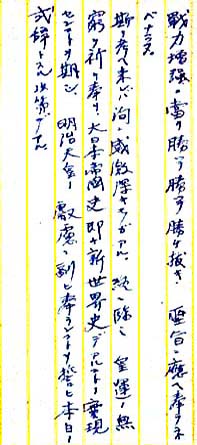 戦力増強ニ奮リ勝ツ勝ツ勝チ抜キ 聖旨ニ応ヘ奉ラネ
バナラヌ
斯ク考ヘ来レバ洵ニ感激深キモノガアル、終ニ臨ミ 皇運ノ無
窮ヲ祈リ奉リ大日本帝国史即チ新世界史デアルコトノ実現
セントヲ期シ 明治大皇ノ 叡慮ニ副ヒ奉ランコトヲ誓ヒ本日ノ
式辞トスル次第デス